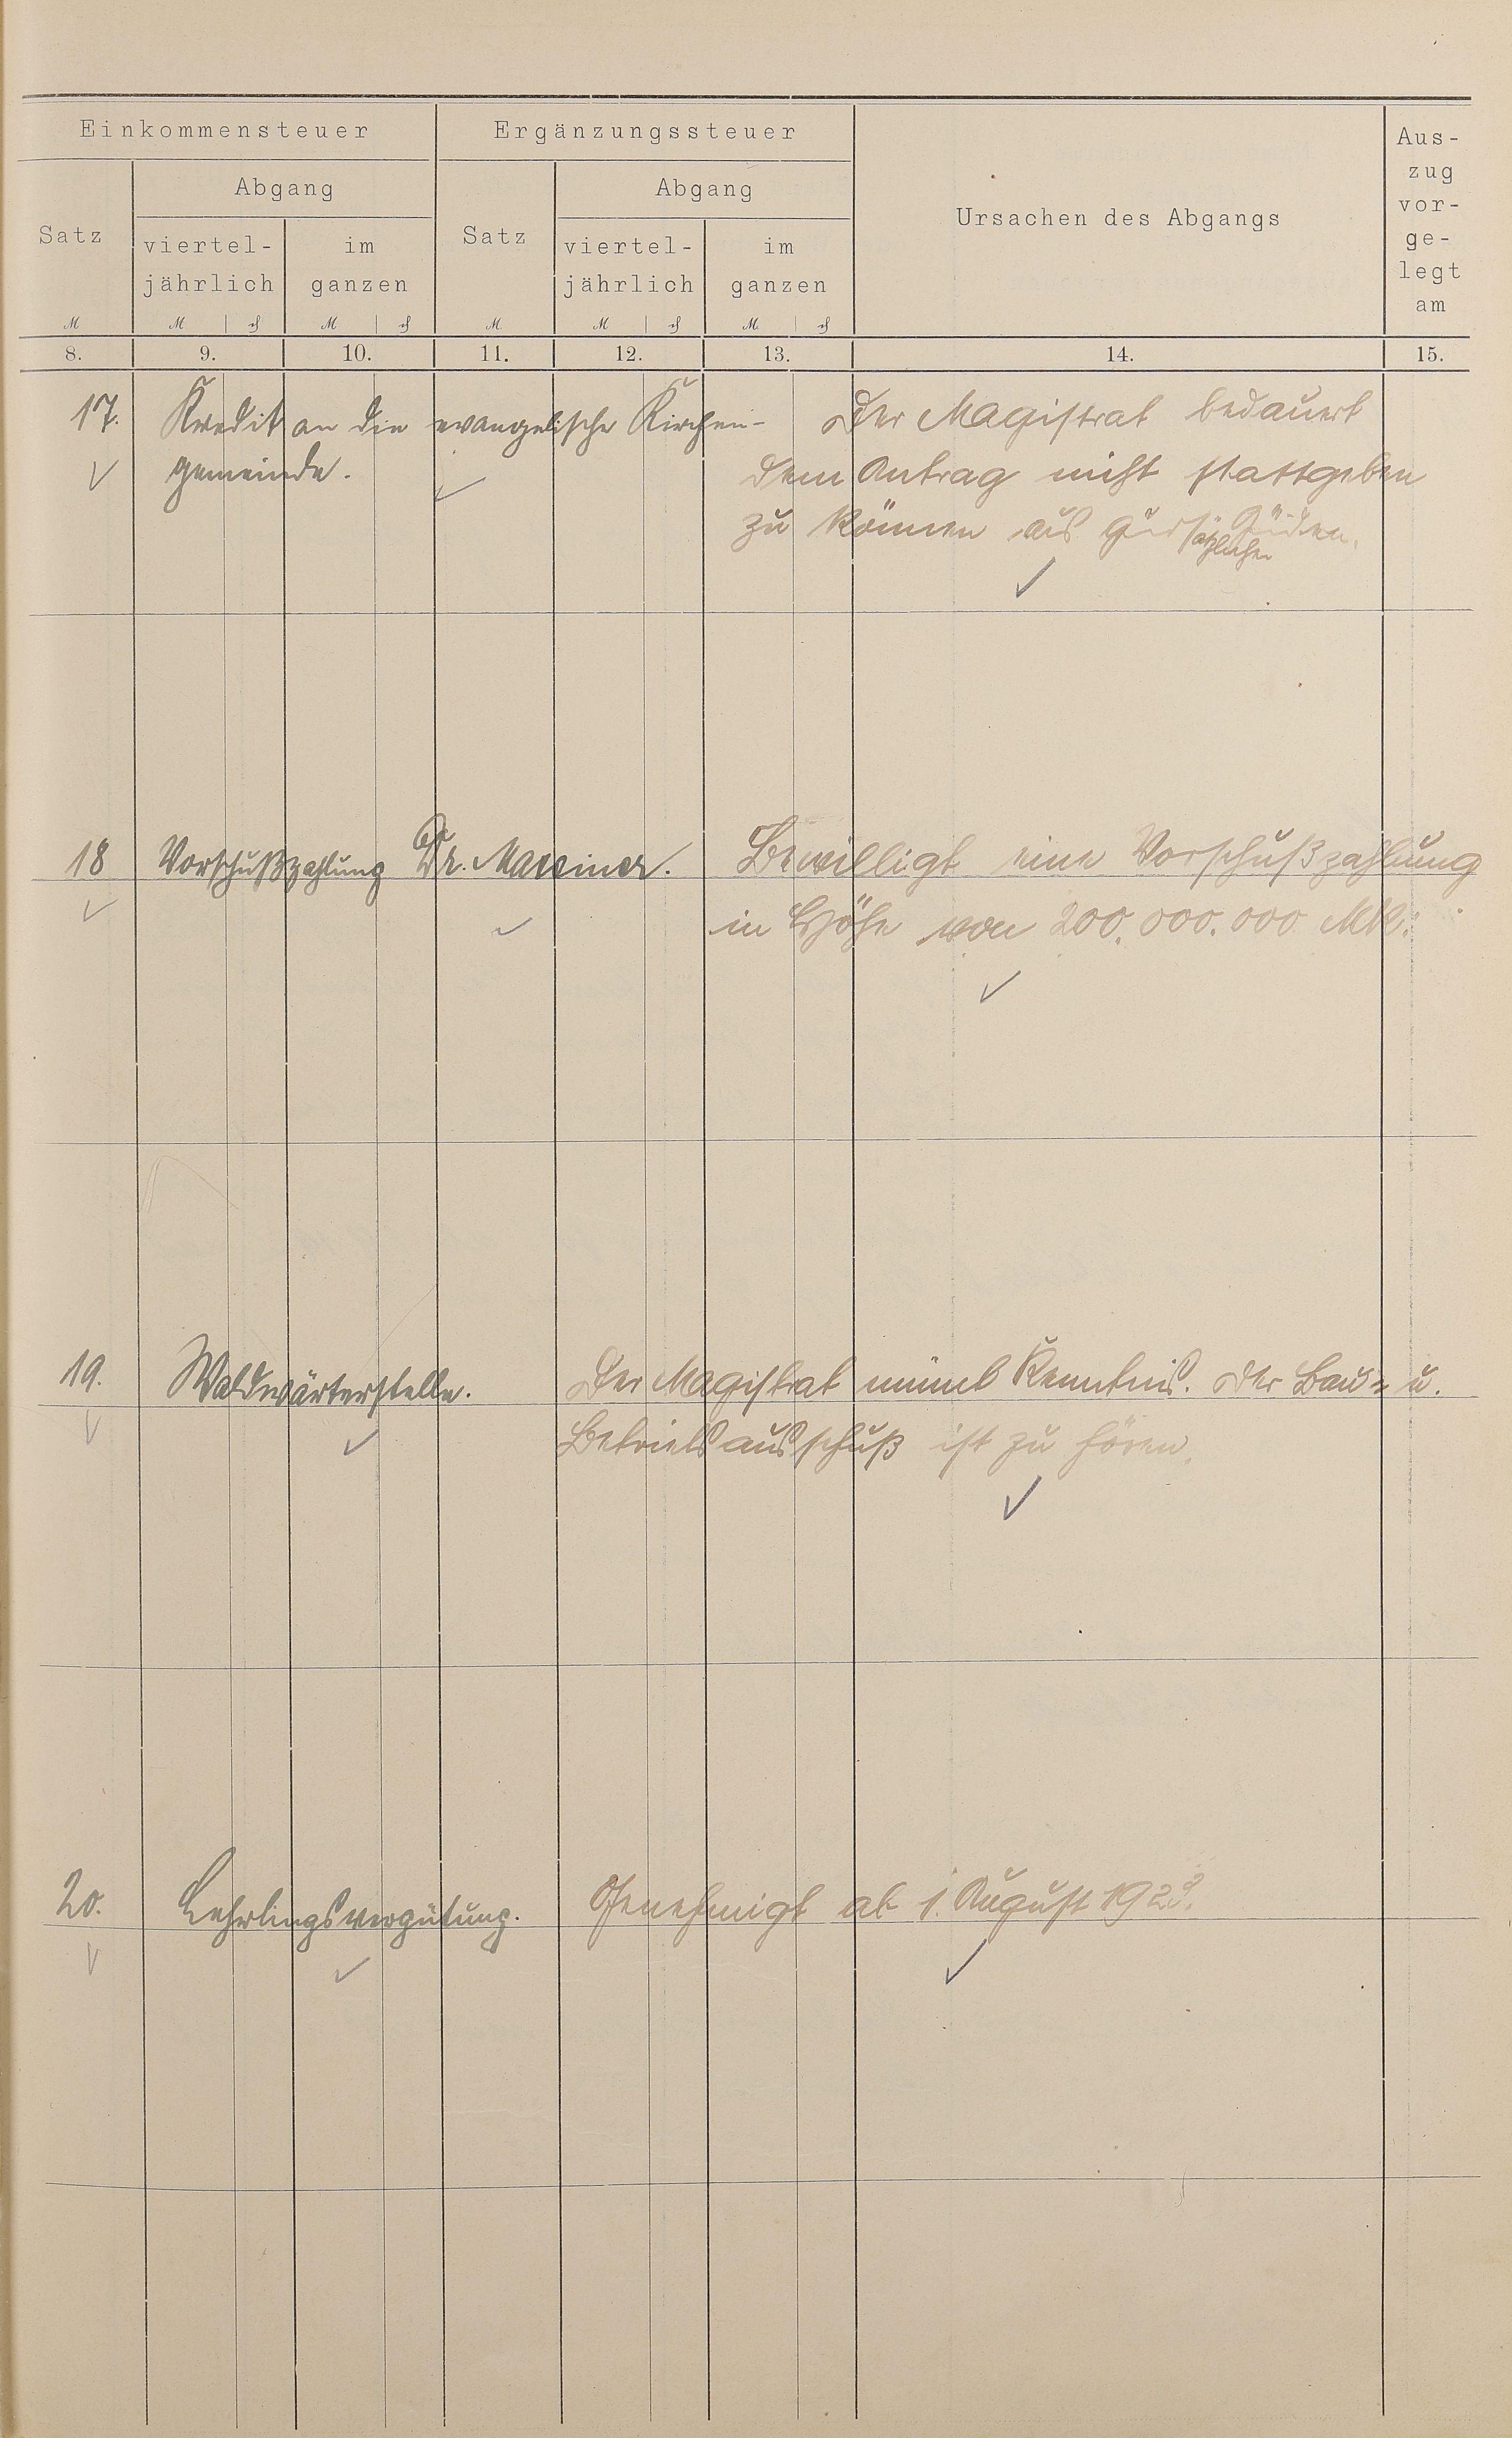 Einkommensteuer
Ergänzungssteuer
Ursachen des Abgangs
Aus-
zug
vor-
ge-
legt
am
Satz
Abgang
Satz
Abgang
viertel-
jährlich
im
ganzen
viertel-
jährlich
im
ganzen
M
M
M
M
M
M
8. 9. 10. 11. 12. 13. 14. 15.
17. Kredit an die evangelische Kirchen-
gemeinde.
Der Magistrat bedauert
dem Antrag nicht stattgeben
zu können aus
18 Vorschußzahlung Dr.
Bewilligt eine Vorschußzahlung
in Höhe von 200.000.000 Mk.
19. Waldwärterstelle.
Der Magistrat nimmt Kenntnis. Der Bau- u.
Betriebsausschuß ist zu hören.
20. Lehrlingsvergütung.
Genehmigt ab 1. August 1923.